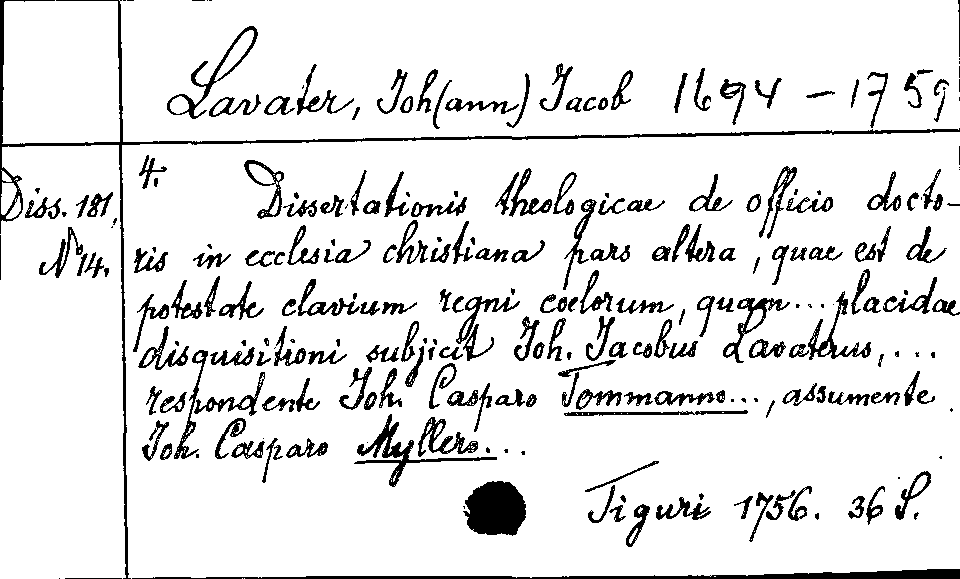 Lavater, Joh(ann) Jacob 1694 - 1759
Diss. 181,
No 14.
4.
Dissertationis theologicae de officio docto-
ris in ecclesia christiana pars altera, quae est de
potestate clavium regni coelorum, quam... placidae
disquisitioni subjicit Joh. Jacobus Lavaterus, ...
respondente Joh. Casparo Tommanno..., assumente
Joh. Casparo Myllero...
Tiguri 1756. 36 S.